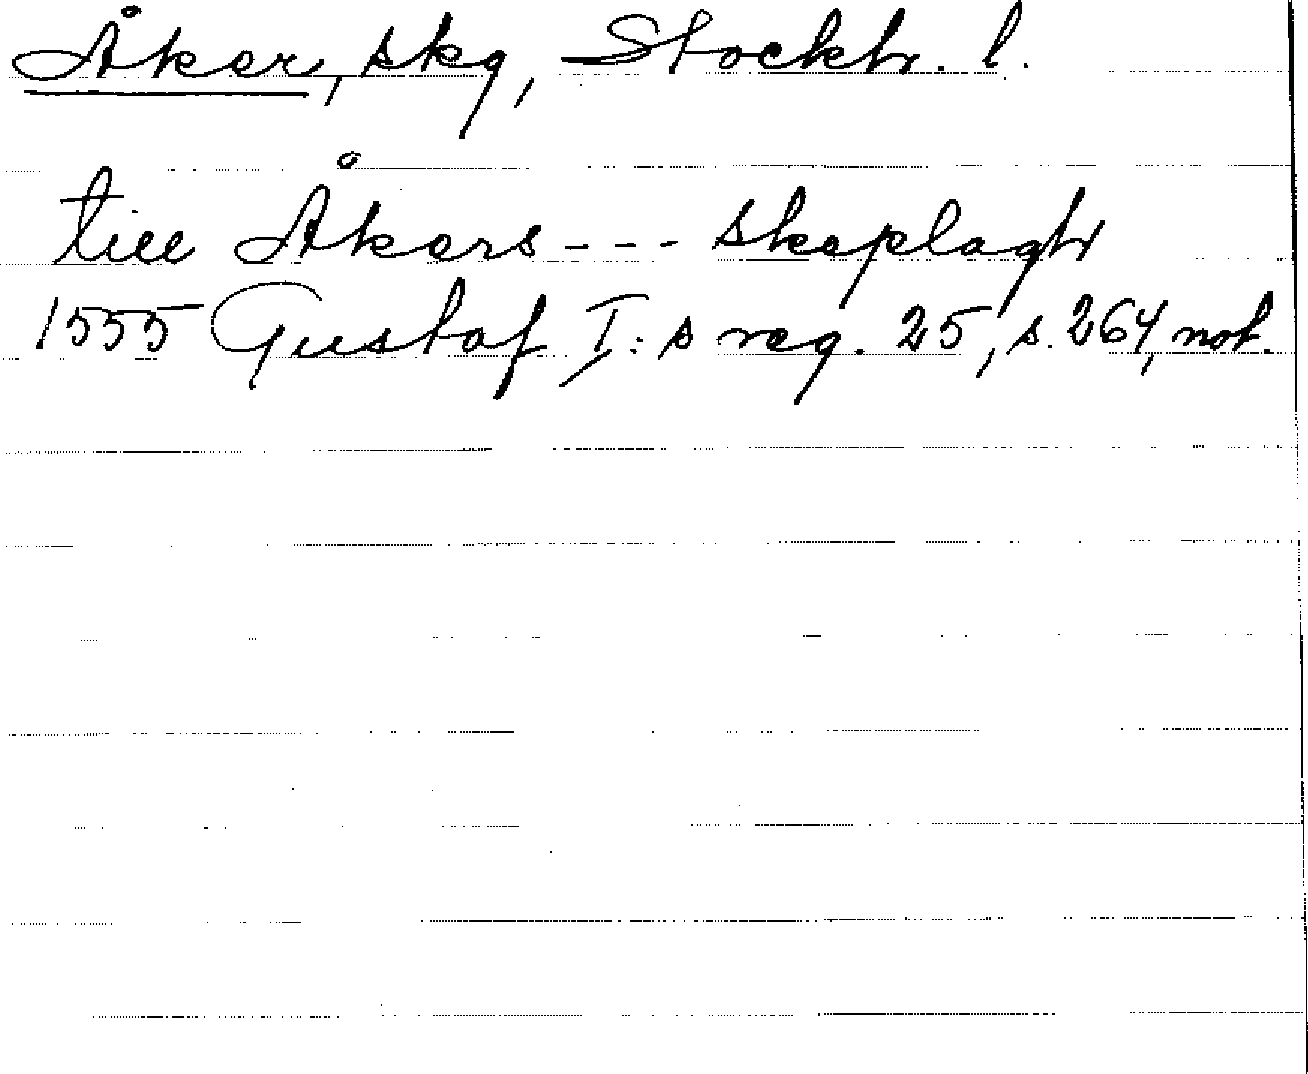 Åker, skg, Stockh. l.
till Åkers - - - skeplagh
1555 Gustaf I:s reg. 25, s. 264, not.